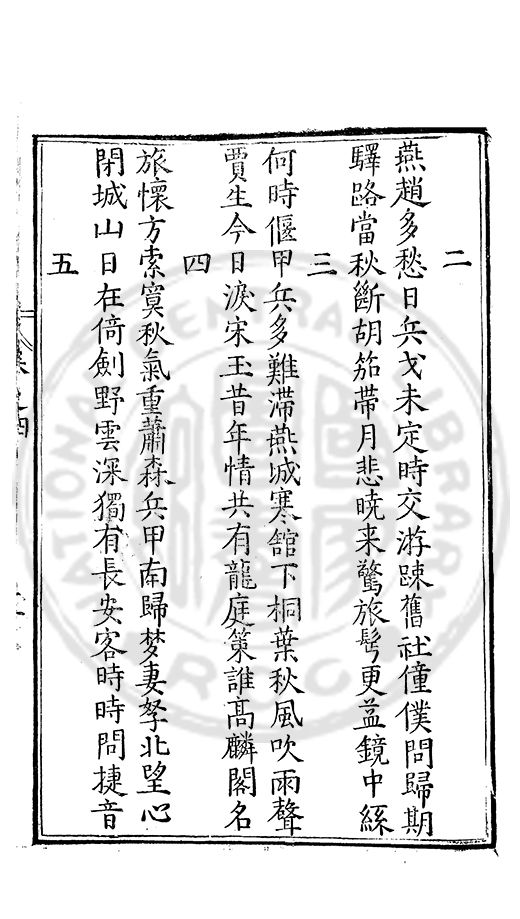 二
燕趙多愁日兵戈未定時交游踈舊社僮僕問歸期
驛路當秋斷胡笳帶月悲曉来驚旅髩更益鏡中絲
三
何時偃甲兵多難滯燕城寒館下桐葉秋風吹雨聲
賈生今日淚宋玉昔年情共有龍庭策誰高麟閣名
四
旅懷方索寞秋氣重蕭森兵甲南歸梦妻孥北望心
閉城山日在倚劍野雲深獨有長安客時時問捷音
五